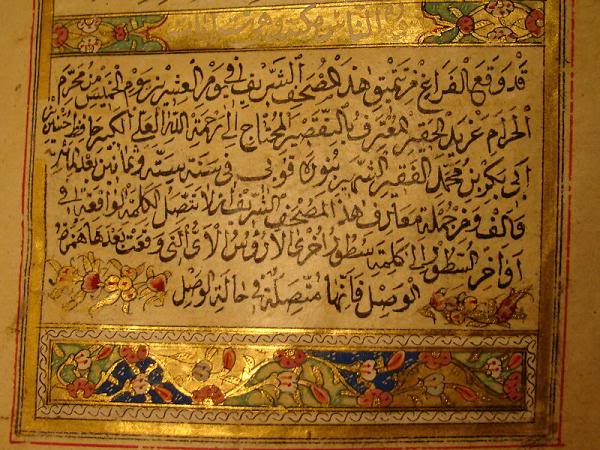 سورة الناس مكية وهي ست آيات
قد وقع الفراغ من تنميق هذا المصحف الشريف في يوم العشرين يوم الخميس من محرم
الحرام عن يد الحقير المعترف بالتقصير المحتاج الى رحمة الله العلي الكبير حافظ حسين
ابى بكر بن محمد الفقير الشهير قوبى فى سنة ستة وثمانين بعد المائة
والف ومن جملة معارف هذا المصحف الشريف ان لا تتصل الكلمة الواقعة فى
أواخر السطور الى كلمة سطور اخرى الا رؤس الآى التى وقعت بعدها همزة
الوصل فانها متصلة فى حالة الوصل